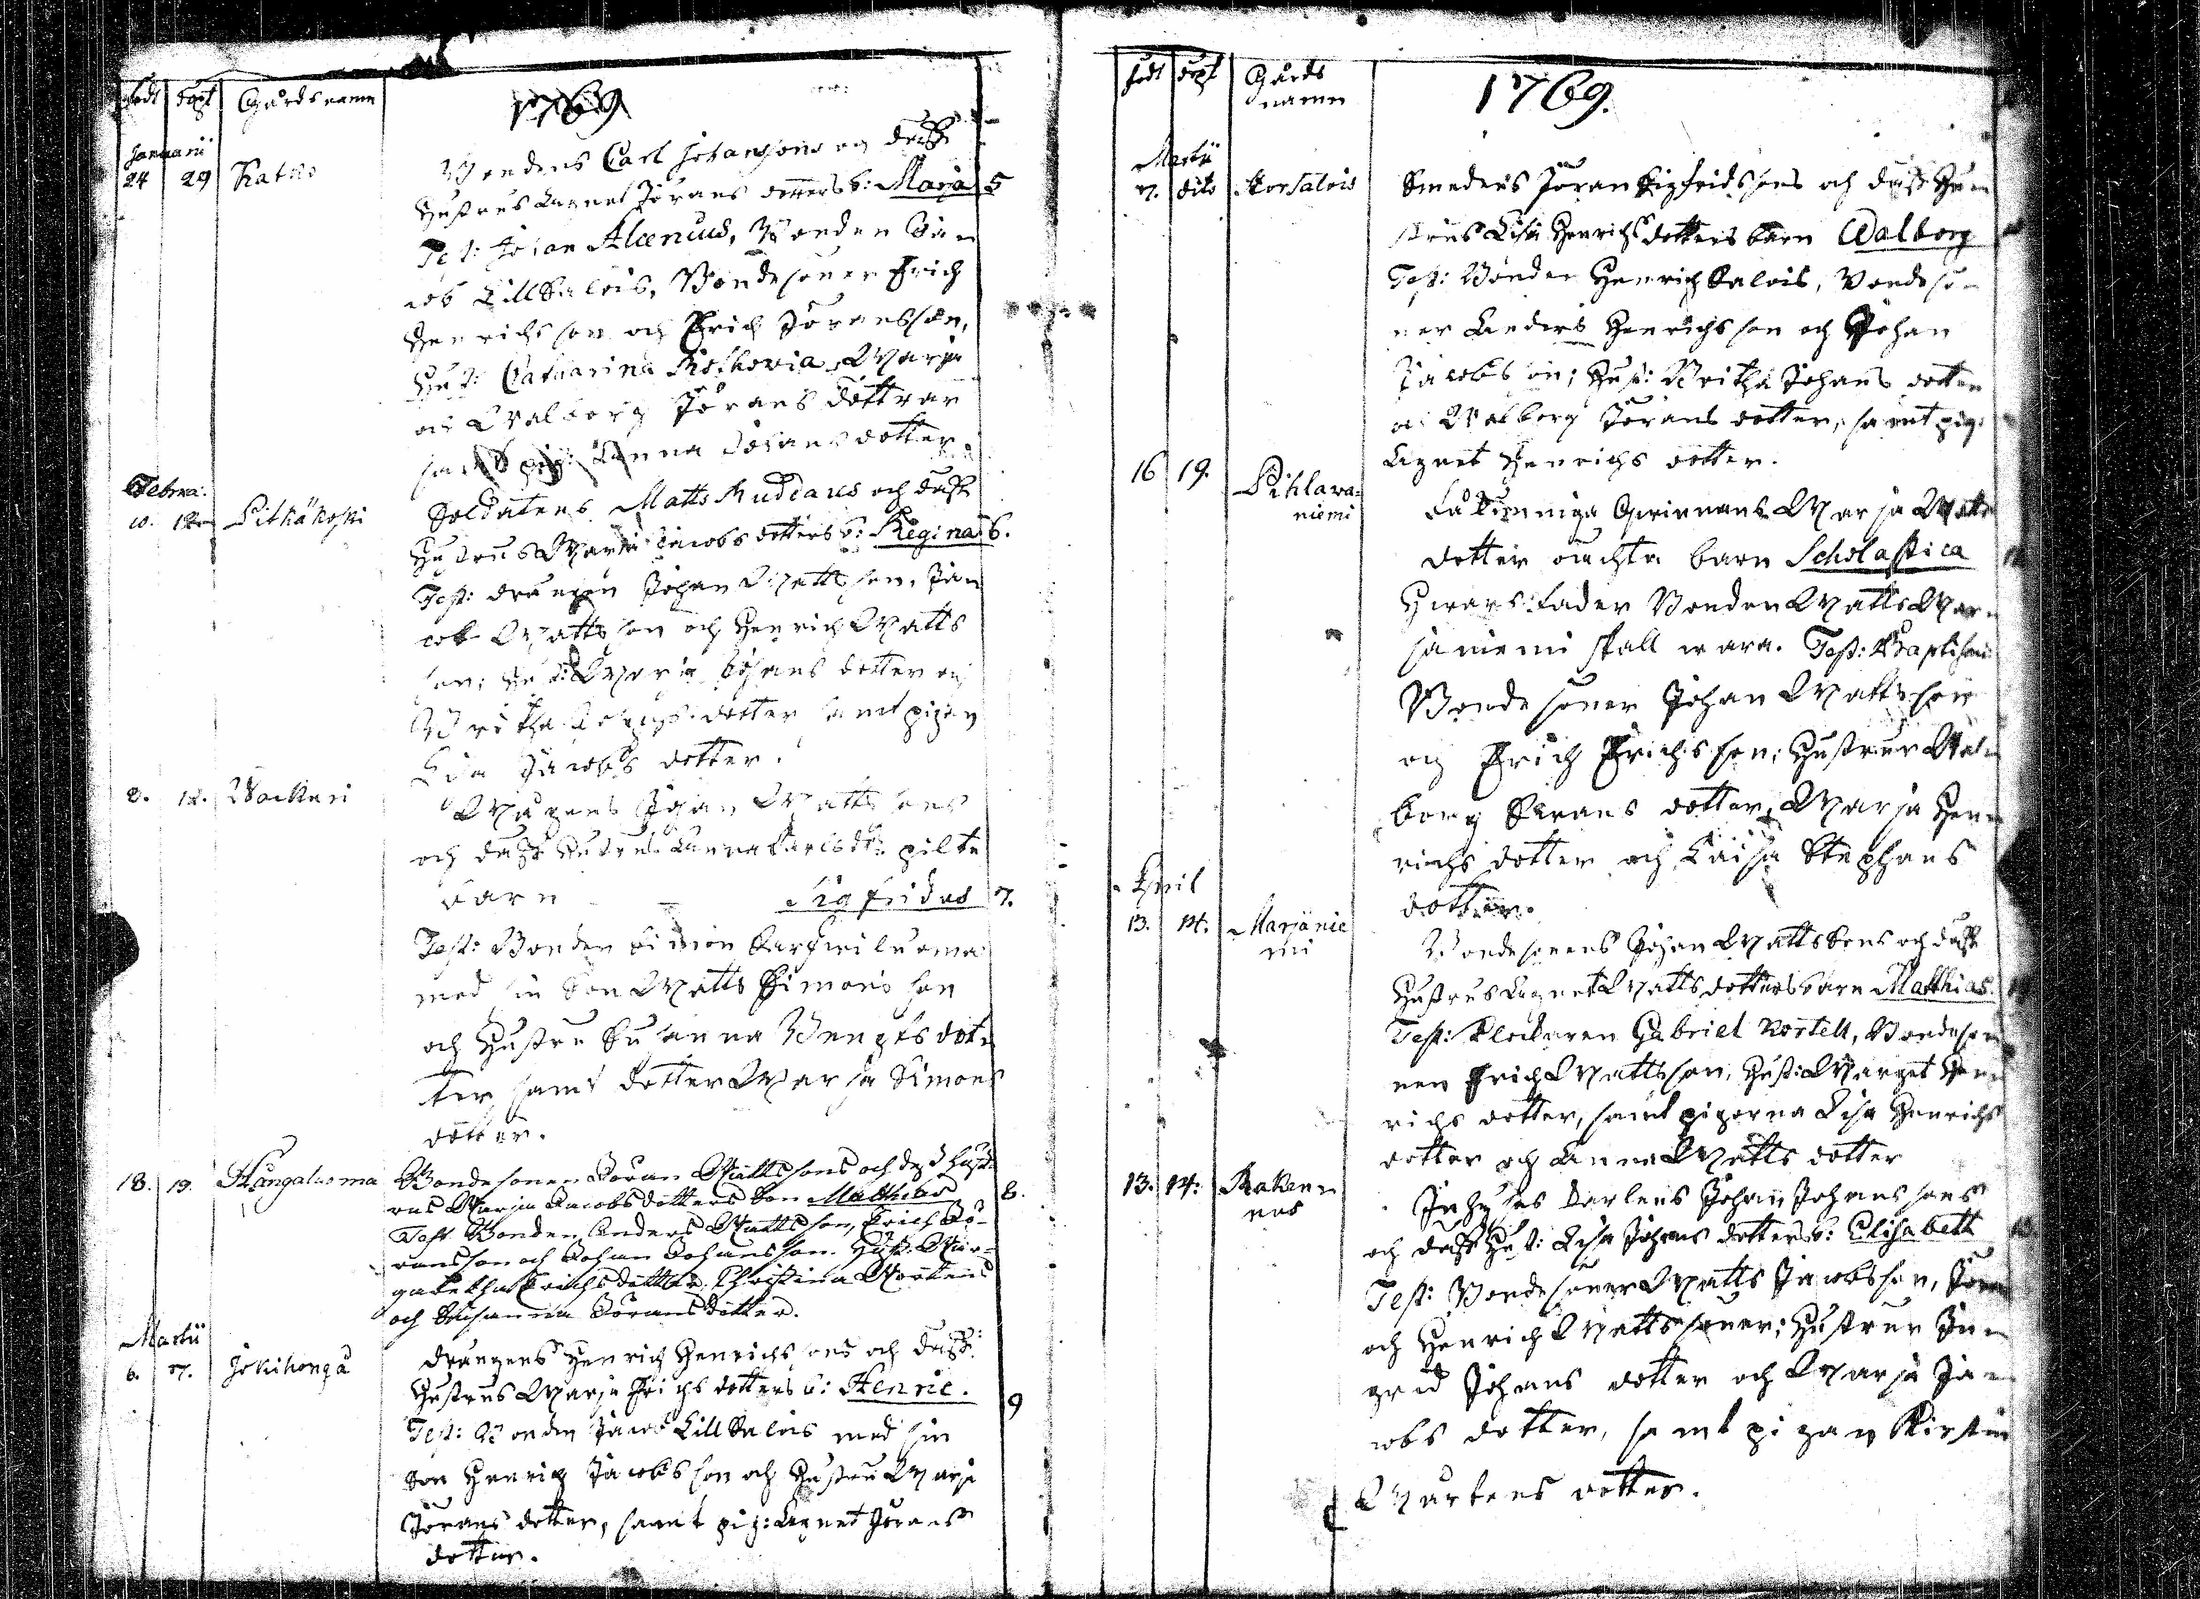 födt döpt Gårds namn 1769
Januarii
24 29 Ratko Bondens Carl Johansons och dess
Hustrus Agnet Jörans dotters b: Maria 5
Test: Johan Alcenius, Bonden Jac
cob Lill Salois, Bondesonen Erich
Henrichs son och Erich Jöransson,
Hust: Catharina Roskovia, Maria
och Walborg Jörans döttrar
samt pig: Anna Johans dotter.
Februa:
10. 12 Pitkäkoski Soldatens Matts Ruddaus och dess
Hustrus Maria Jacobs dotters b: Regina 6.
Test: drängen Johan Mattsson, Ja
cob Mattsson och Henrich Matts
son; Hust: Maria Johans dotter och
Britha dotter samt pigan
Lisa Jacobs dotter.
8. 12. Wackuri Mågens Johan Mattssons
och dess Hustrus Anna Carlsdr: pilte
barn Sigfridus 7.
Test: Bonden Simon Karhuiluoma
med sin Son Matts Simons son
och Hustru Susanna Bengts dot
ter, samt dotter Marja Simons
dotter.
18. 19. Kångaluoma Bondesonen Jöran Mattssons och dess hust
rus Marja Jacobsdotters Son Matthias 8.
Test Bonden Anders Mattsson, Erich Jö-
ransson och Johan Johansson. Hust. Mar-
garetha Erichsdotter, Christina Mårtens
och Susanna Jöransdotter.
Martii
6. 7. Jokihonga Drängens Henrich Henrichssons och dess
Hustrus Marja Erichs dotters b: Henric. 9
Test: Bonden Jacob Lill Salois med sin
Son Henrich Jacobsson och Hustru Marja
Jörans dotter, samt pig: Agnet Jörans
dotter.
födt döpt Gårds namn 1769.
Martii
7. dito Korsalois Smedens Jöran Sigfridssons och dess Hu
strus Lisa Henrichs dotters barn Walborg
Test: Bonden Henrich Salois, Bondesö
ner Anders Henrichsson och Johan
Jacobsson; Hust: Britha Johans dotter
och Walborg Jörans dotter, samt pig:
Agnet Henrichs dotter.
16 19. Pihlawa
niemi qwinnans Marja Matts
dotter oächta barn Scholastica
Hwars fader Bonden Matts Mar
janiemi skall wara. Test: Baptismi
Bonde söner Johan Mattsson
och Erich Erichsson; Hustrur Wal
borg dotter, Marja Hen
richs dotter och Caisa Stephans
dotter.
April
13. 14. Marjänie
mi Bondesonens Johan Matts Sons och dess
Hustrus Agnet Matts dotters barn Matthias.
Test: Klockaren Gabriel Kortell, Bondeso
nen Erich Mattsson, Hust: Marget Hen
richs dotter, samt pigorna Lisa Henrichs
dotter och Anna Matts dotter
13. 14: Rakenn
nus Inhyses karlens Johan Johanssons
och dess Hust: Lisa Johans dotters b: Elisabeth
Test: Bondesöner Matts Jacobsson, Jöran
och Henrich Mattssöner; Hustrur In
grid Johans dotter och Marja Ja
cobs dotter, samt pigan Kirstin
Mårtens dotter.